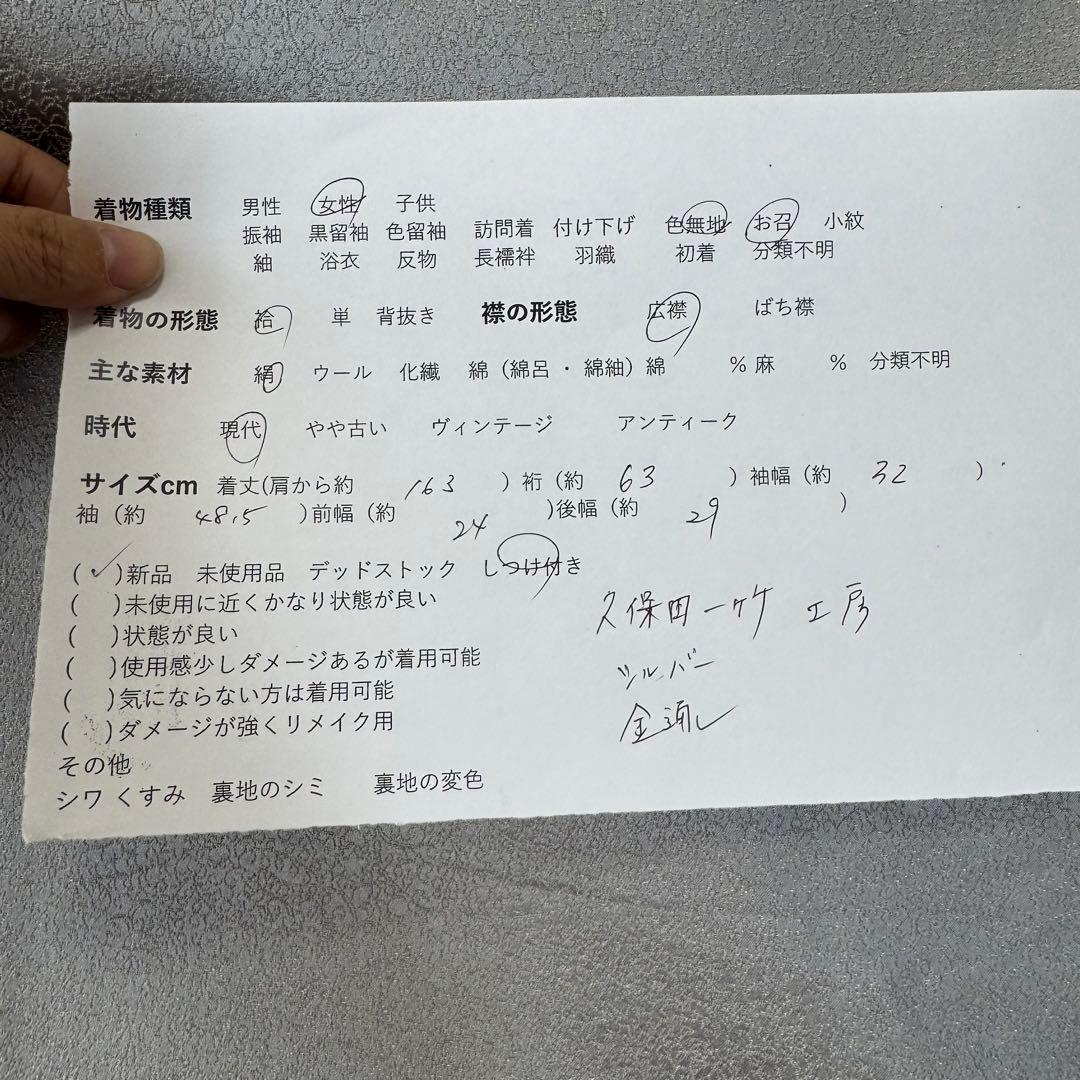 着物種類 男性 女性 子供
振袖 黒留袖 色留袖 訪問着 付け下げ 色無地 お召 小紋
紬 浴衣 反物 長襦袢 羽織 初着 分類不明
着物の形態 袷 単 背抜き 襟の形態 広襟 ばち襟
主な素材 絹 ウール 化繊 綿（綿呂・綿紬）綿 % 麻 % 分類不明
時代 現代 やや古い ヴィンテージ アンティーク
サイズcm 着丈(肩から約 163 ) 裄（約 63 ) 袖幅（約 32 )
袖（約 48.5 )前幅（約 24 )後幅（約 29 )
( ✓ )新品 未使用品 デッドストック しつけ付き
( )未使用に近くかなり状態が良い
( )状態が良い
( )使用感少しダメージあるが着用可能
( )気にならない方は着用可能
( )ダメージが強くリメイク用
その他
シワ くすみ 裏地のシミ 裏地の変色
久保田一竹 工房
シルバー
金通し